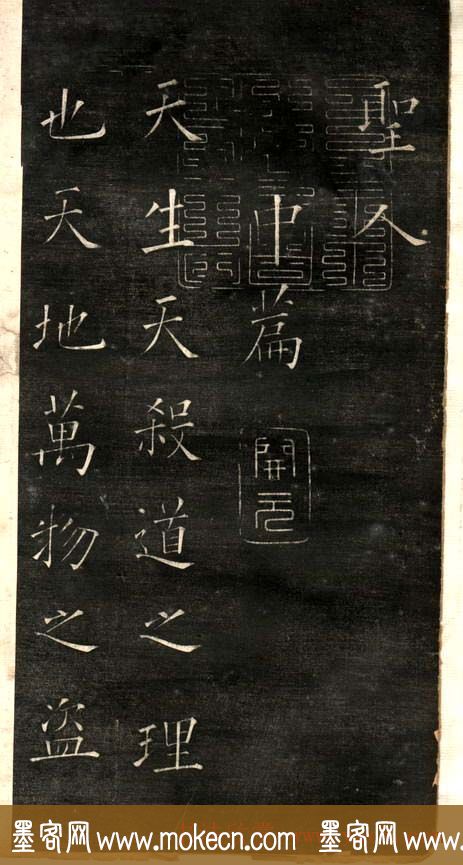 聖人
中篇
開元
天生天殺道之理
也天地萬物之盜
墨客网www.mokecn.com 墨客网www.